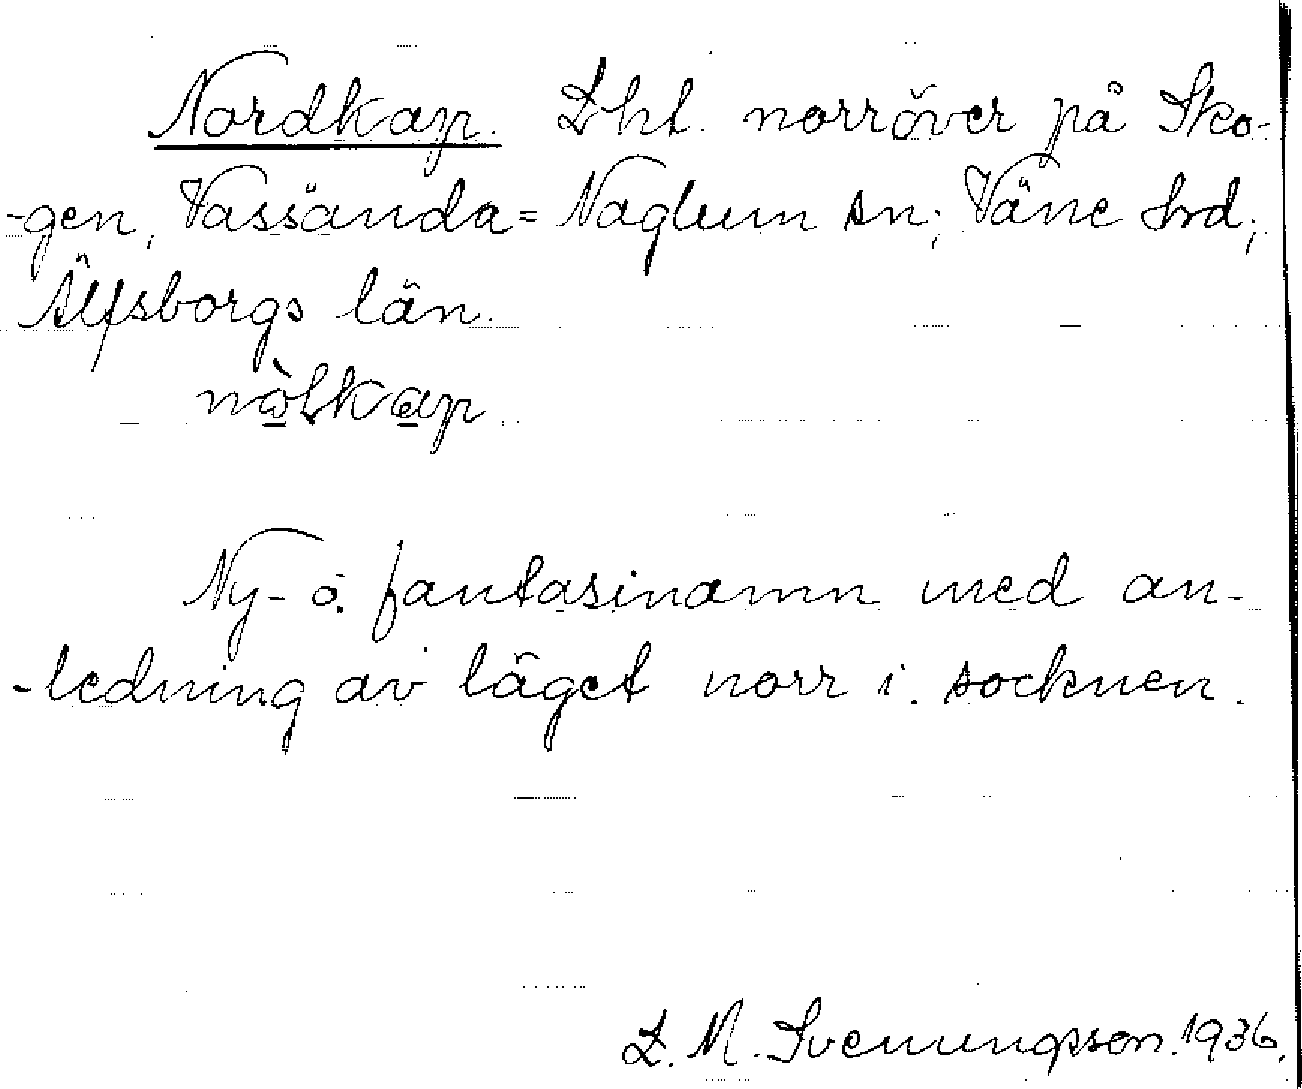 Nordkap. Lht. norröver på Sko-
-gen, Vassända=Naglum sn; Väne hrd;
Älfsborgs län.
nòlkap.
Ny- o. fantasinamn med an-
-ledning av läget norr i socknen.
L. M. Svenungsson. 1936.